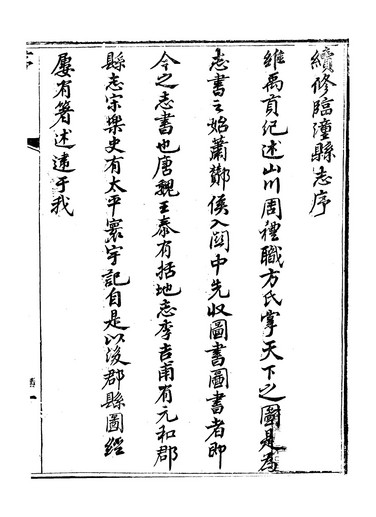 續修臨潼縣志序
維禹貢紀述山川周禮職方氏掌天下之圖是為
志書之始蕭酇侯入関中先収圖書圖書者即
今之志書也唐魏王泰有括地志李吉甫有元和郡
縣志宗樂史有太平寰宇記自是以後郡縣圖經
屢有箸述逮于我